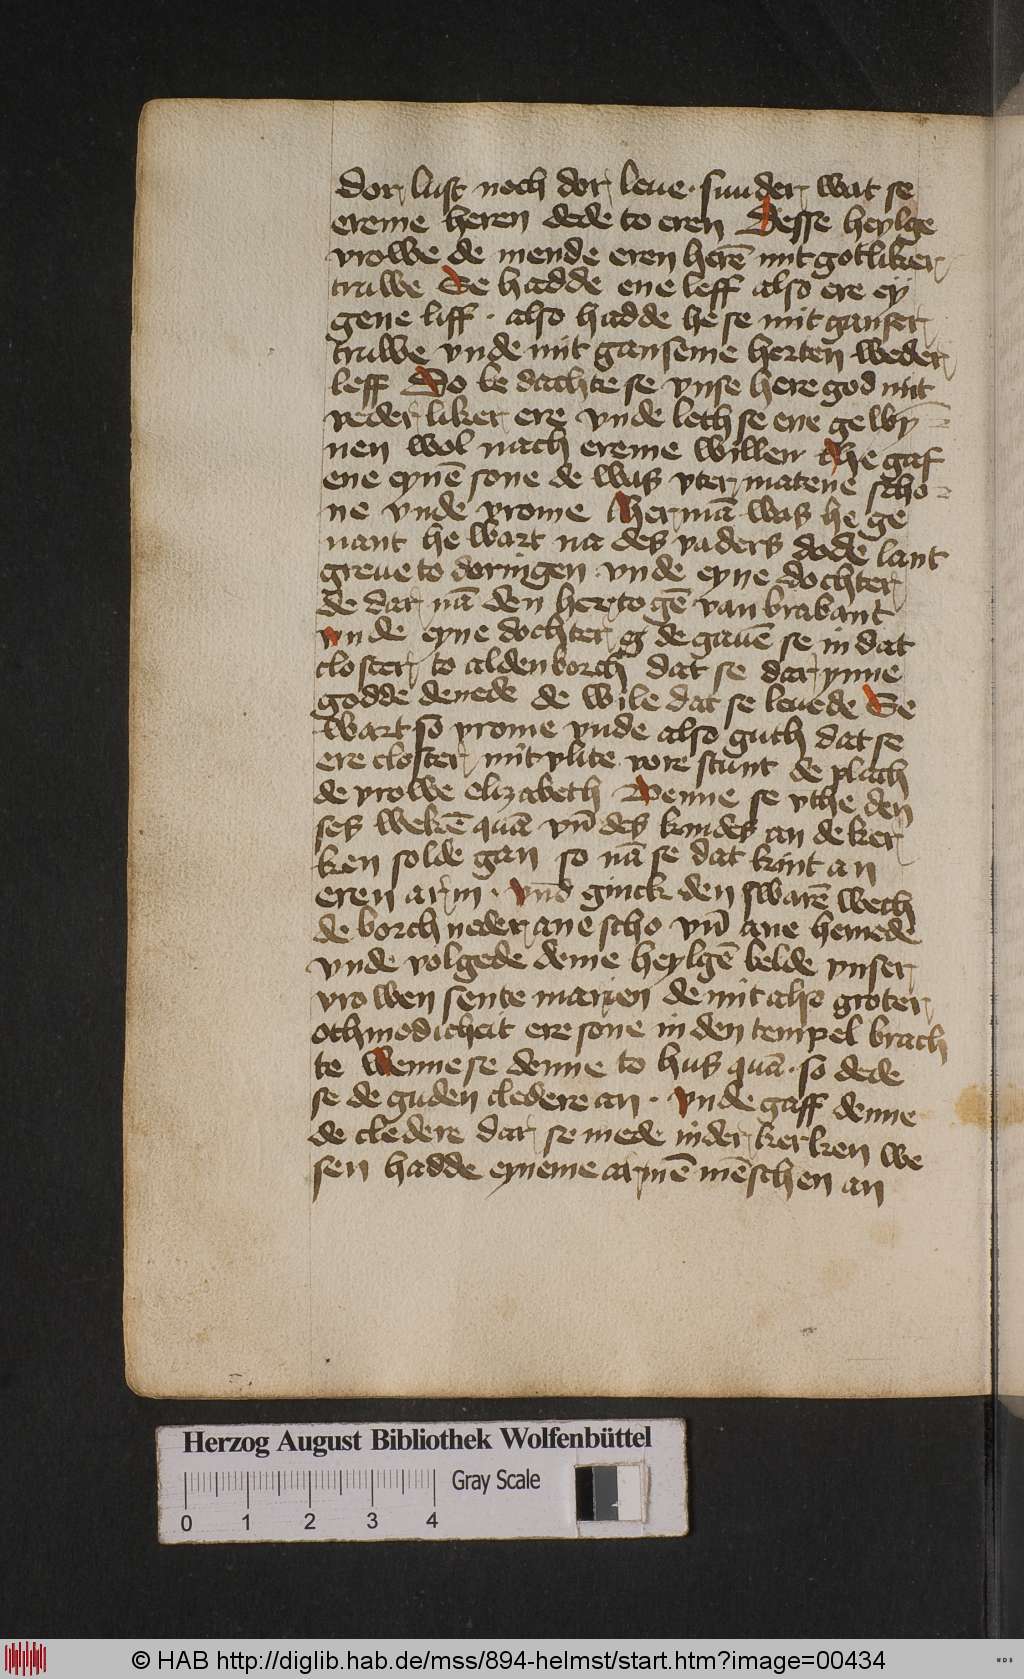 dor lust noch dor leue · sunder wat se
ereme heren dede to eren Desse heylge
vrowe de mende eren herē mit gotliker
truwe Se hadde ene leff also ere ey
gene liff · also hadde he se mit ganser
truwe vnde mit ganseme herten weder
leff Do be dachte se vnse here god mit
veder liker ere vnde leth se ene ge wy=
nen wol nach ereme willen he gaf
ene eynē sone de was vter matene scho=
ne vnde vrome herman was he ge
nant he wart na des vaders dode lant
greue to doringen vnde eyne dochter
de dar nā den hertogē van brabant
vnde eyne dochter de gauē se in dat
closter to aldenborch dat se dar ynne
godde denede de wile dat se leuede Se
wart so vrome vnde also guth dat se
ere closter mit vlite vore stunt de plach
de vrowe elizabeth Wenne se vthe den
ses wekē quā vn̄ des kindes an de ker
ken solde gan so nā se dat kint an
eren arm · vnd ginck den swarē wech
de borch neder ane scho vn̄ ane hemede
vnde volgede deme heylgē belde vnser
vrowen sente marien de mit also groter
othmodicheit ere sone in den tempel brach
te Wenne se denne to hus quā · so dede
se de guden cledere an · vnde gaff denne
de cledere dar se mede in der kerken we
sen hadde eyneme armē mēschen an
Herzog August Bibliothek Wolfenbüttel
Gray Scale
0 1 2 3 4
© HAB http://diglib.hab.de/mss/894-helmst/start.htm?image=00434